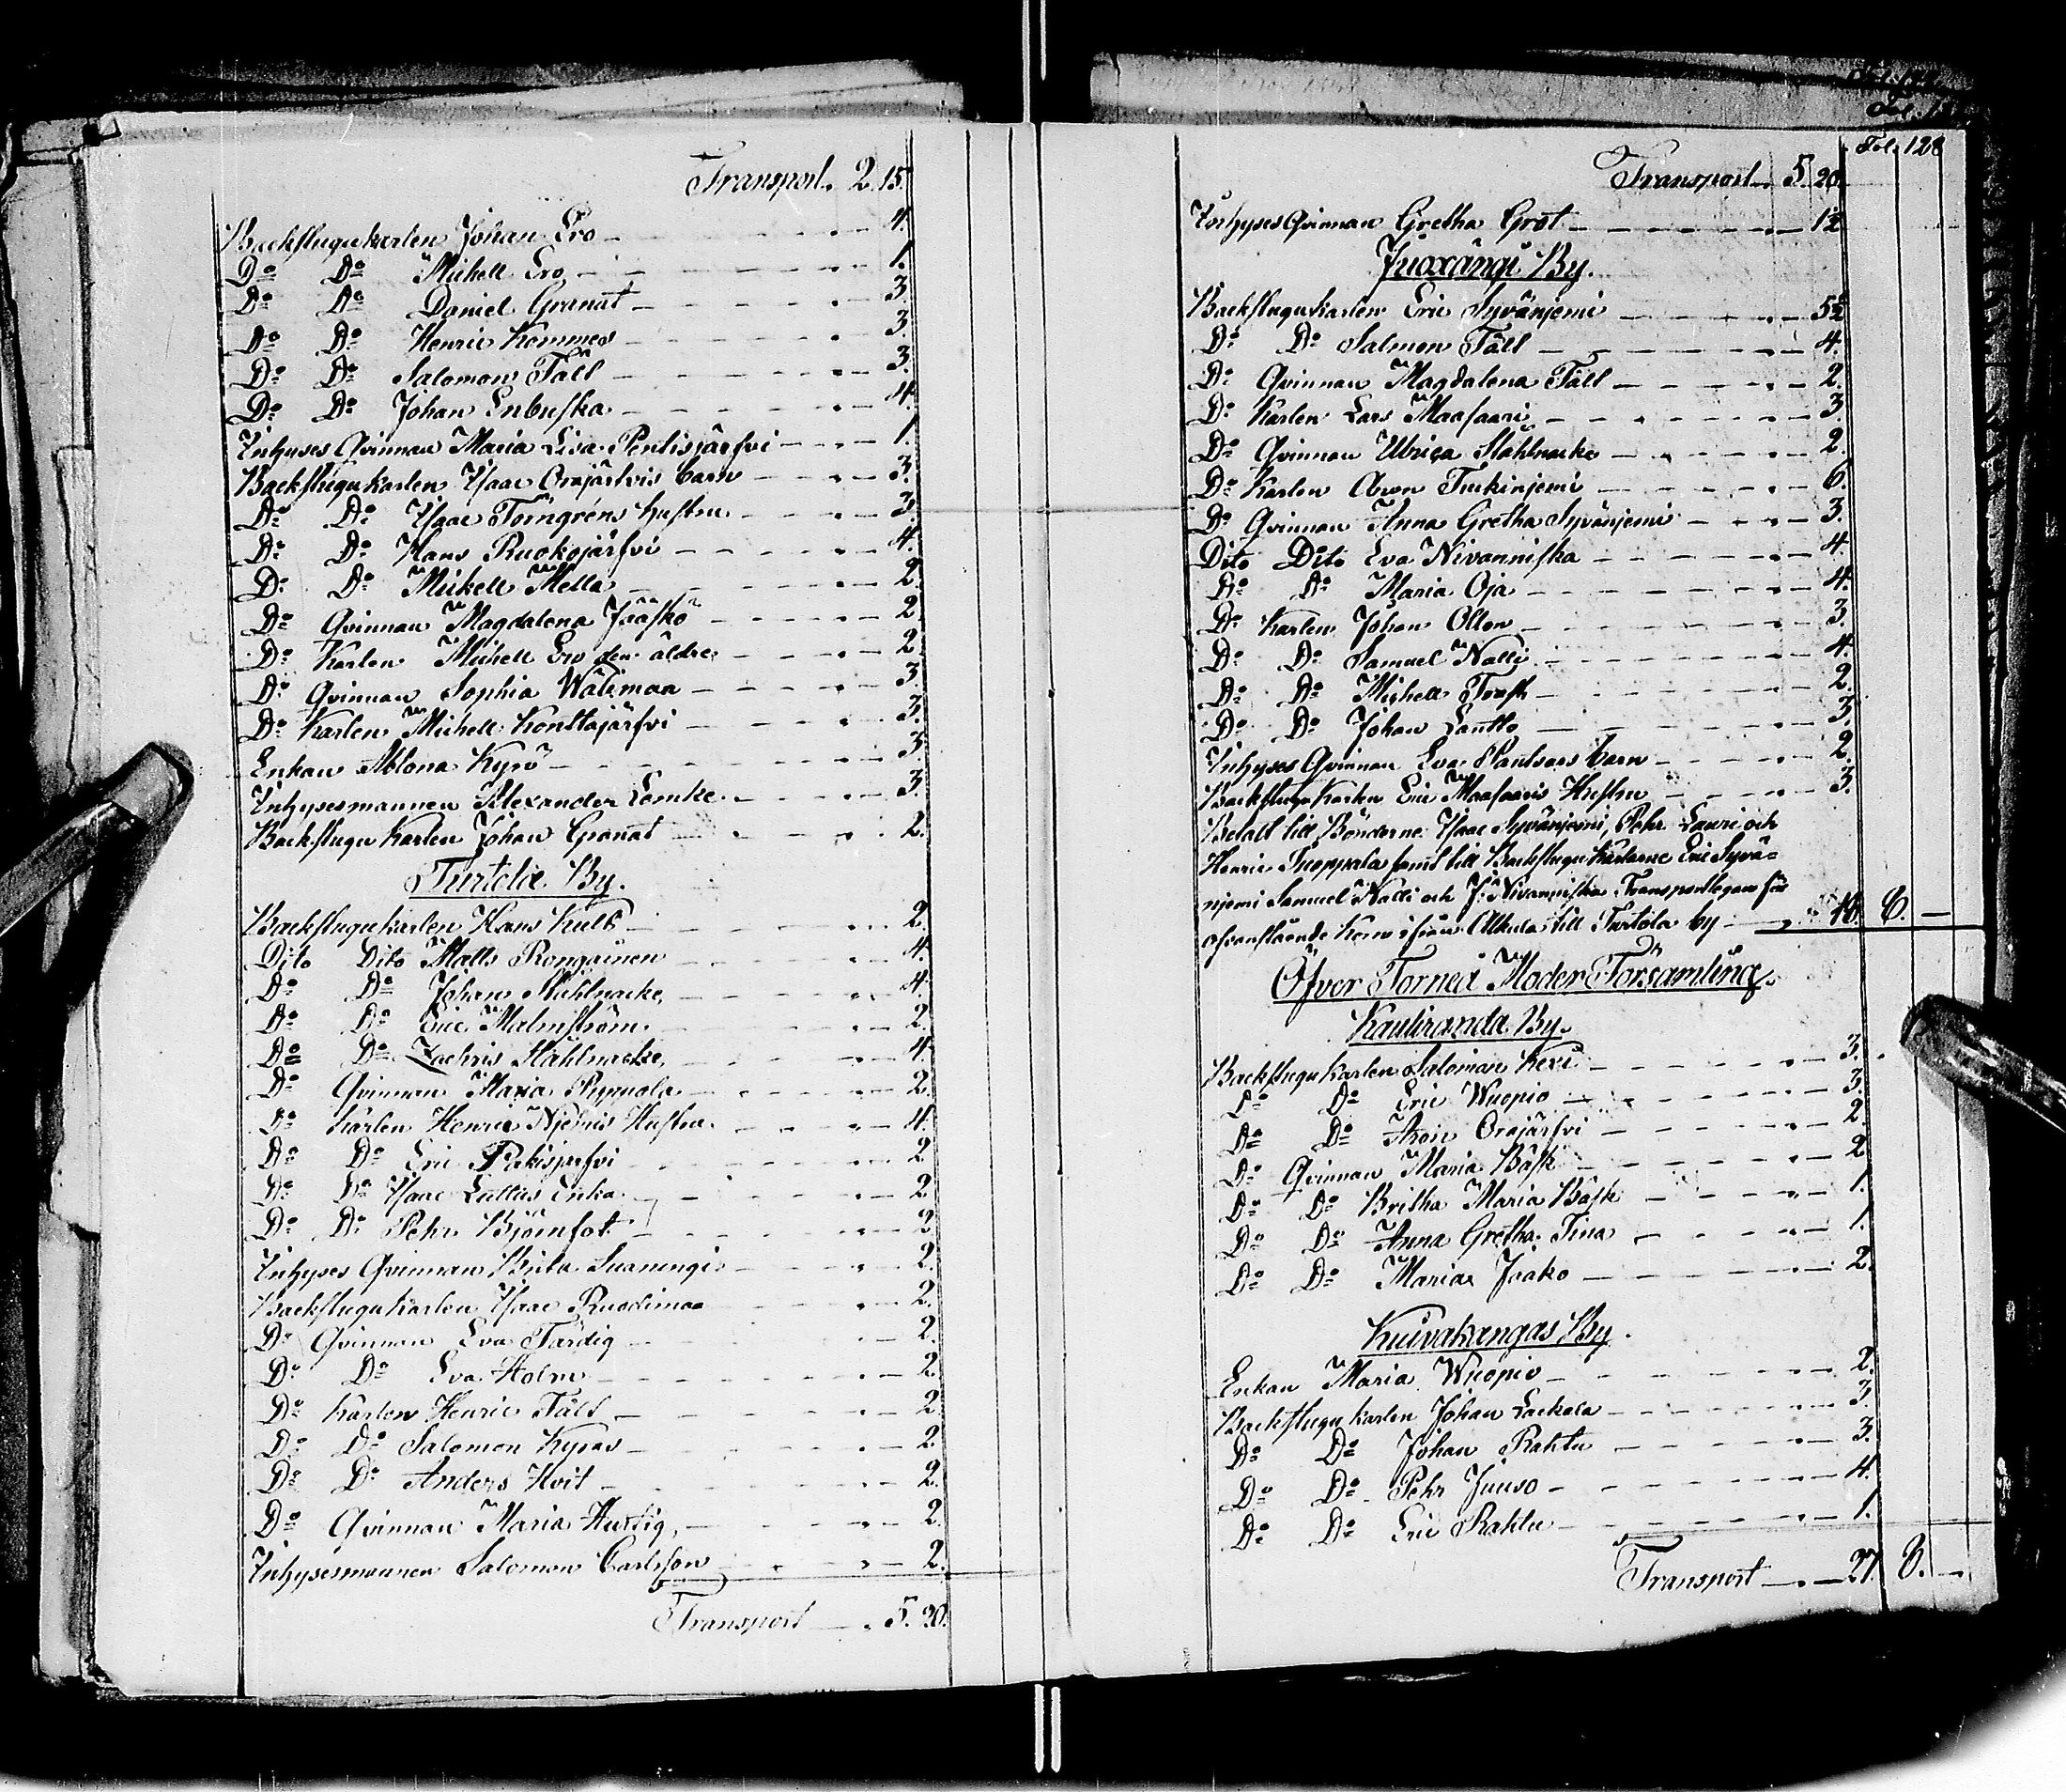 Transport. 2. 15.
Backstugukarlen Johan Ero - 4.
Do Do Michell Ero - 1.
Do Do Daniel Granat - 3
Do Do Henric Kommes - 3.
Do Do Salomon Fält - 3.
Do Do Johan Enbuska - 4.
Inhyses Qvinnan Maria Lisa Pentisjärfvi - 1.
Backstugu Karlen Isaac Orajärfvis barn - 3.
Do Do Isaac Törngréns hustru - 3.
Do Do Hans Ruokojärfvi - 4.
Do Do Mickell Mella - 2.
Do Qvinnan Magdalena Jääskö - 2
Do Karlen Michell Ero den äldre - 2
Do Qvinnan Sophia Wälimaa - 3.
Do Karlen Michell Konttajärfvi - 3.
Enkan Kyrö - 3.
Inhysesmannen Alexander Lemke - 3
Backstugu Karlen Johan Granat - 2.
Turtola By.
Backstugukarlen Hans Hult - 2
Dito Dito Matts Rongainen - 4.
Do Do Johan Stählnacke - 4.
Do Do Eric Malmström - 2
Do Do Zachris Ståhlnacke - 4.
Do Qvinnan Maria - 2
Do Karlen Henric Hustru - 4.
Do Do Eric - 2
Do Do Isaac Enka - 2
Do Do Pehr Björnfot - 2
Inhyses Qvinnan Brita Suanengi - 2.
Backstugu Karlen Isaac Ruodimaa - 2.
Do Qvinnan Eva Färdig - 2.
Do Do Eva Holm - 2
Do Karlen Henric Fält - 2
Do Do Salomon Kyrös - 2.
Do Do Anders Hvit - 2.
Do Qvinnan Maria Hurtig - 2.
Inhysesmannen Salomon Carlsson - 2.
Transport - 5. 20.
Fol. 128
Transport - 5. 20.
Inhyses Qvinnan Gretha Grot - 1½
Juoxängi By.
Backstugu Karlen Eric Syvänjemi - 5½
Do Do Salmon Fält - 4.
Do Qvinnan Magdalena Fält - 2.
Do Karlen Lars Maasaari - 3
Do Qvinnan Ulrica Ståhlnacke - 2.
Do Karlen Aron Turkinjemi - 6.
Do Qvinnan Anna Gretha Syvänjemi - 3.
Dito Dito Eva Nivanniska - 4.
Do Do Maria Oja - 4.
Do Karlen Johan Ollon - 3.
Do Do Samuel Nalli - 4.
Do Do Michell Trask - 2.
Do Do Johan Lantto - 3.
Inhyses Qvinnan Eva barn - 2.
Backstugu Karlen Eric Maasaaris Hustru - 3.
Betalt till Bönderne Isaac Syvänjemi, Pehr Lauri och
Henric samt till Backstugu Karlarne Eric Syvä=
njemi Samuel Nalli och J: Nivanniska Transportlegan för
ofvanstående Korn ifrån Alkula till Turtola by - 18. 6. -
Öfver Torneå Moder Församling.
Kauliranda By.
Backstugu Karlen Salomon Kexi - 3.
Do Do Eric Wuopio - 3.
Do Do Aron Orajärfvi - 2.
Do Qvinnan Maria Bäsk - 2
Do Do Britha Maria Bäsk - 1.
Do Do Anna Gretha Tina - 1.
Do Do Maria Jaako - 2.
Kuivakangas By.
Enkan Maria Wuopio - 2.
Backstugu Karlen Johan Laekala - 3.
Do Do Johan Rahtu - 3.
Do Do Pehr Juuso - 4.
Do Do Eric Rahtu - 1.
Transport - 27. 8. -